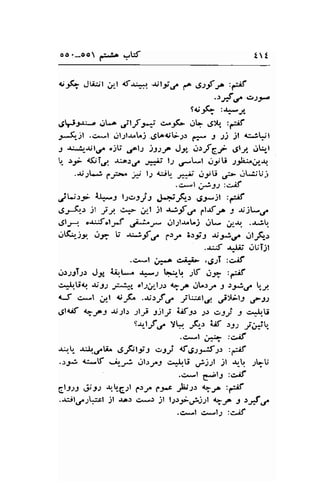 ٤١٤ کتاب هشتم ٥٥١-٥٥٠
گفتم: هر کوری هم می‌تواند ببیند که این انتقال چگونه
صورت می‌گیرد.
پرسید: چگونه؟
گفتم: بلای جان حکومت تیموکراتی همان صندوقهای
انباشته از زر و سیم در خانه‌های زمامداران است. از یکسو
اینان برای خرج‌کردن پول هر روز راهی تازه می‌اندیشند و
بدین‌منظور قانون اساسی را تغییر می‌دهند بی‌آنکه خود یا
زنانشان حتی قانون تغییر یافته را نیز محترم شمارند.
گفت: روشن است.
گفتم: از سوی دیگر تجمل و ثروت را وسیلهٔ خودنمائی
می‌سازند و هر کدام می‌کوشد از این حیث برتر از دیگری
باشد. بدین سان زمامداران سرمشقی گمراه‌کننده برای
دیگران می‌شوند و تودهٔ مردم می‌کوشند تا چون بوزینگان
از آنان تقلید کنند.
گفت: آری، حقیقت همین است.
گفتم: چون کار باینجا رسید مسابقهٔ پول درآوردن
برپا می‌شود و مردمان هرچه در این‌راه پیشتر روند به قابلیت
روحی و اخلاقی بی‌اعتناتر می‌گردند. مگر نه این است که
قابلیت و ثروت در دو کفهٔ ترازو قرار دارند و هر چه کفه‌ای
پائین‌تر رود کفهٔ دیگر ببالا می‌گراید؟
گفت: چنین است.
گفتم: در کشوری که ثروت و توانگری مقامی بلند یابند
ناچار باید از ارزش قابلیت و مردان شریف کاسته شود.
گفت: واضح است.
گفتم: هرچه در نظر عموم مردم ارج یابد رونق و رواج
می‌گیرد و هرچه ارزش خود را از دست دهد از اعتبار می‌افتد.
گفت: راست است.